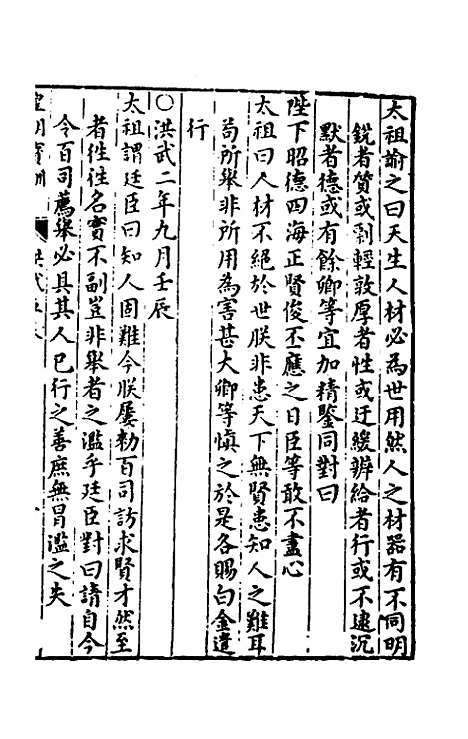 太祖諭之曰天生人材必為世用然人之材器有不同明
銳者質或剽輕敦厚者性或迂緩辦給者行或不逮沉
默者德或有餘卿等宜加精鑒同對曰
陛下昭德四海正賢俊丕應之日臣等敢不盡心
太祖曰人材不絕於世朕非患天下無賢患知人之難耳
苟所舉非所用為害甚大卿等慎之於是各賜白金遣
行
○洪武二年九月壬辰
太祖謂廷臣曰知人固難今朕屢勅百司訪求賢才然至
者徃徃名實不副豈非舉者之濫乎廷臣對曰請自今
今百司薦舉必具其人已行之善庶無冒濫之失